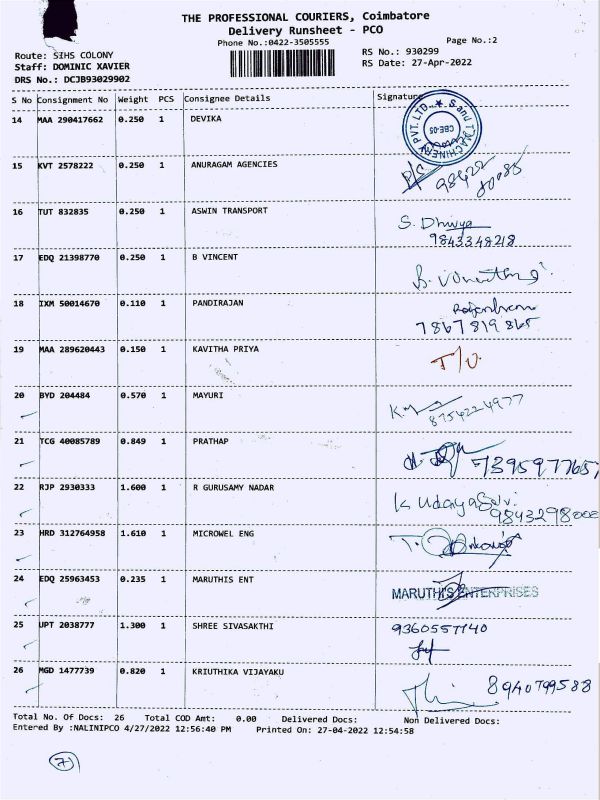 THE PROFESSIONAL COURIERS, Coimbatore
Delivery Runsheet - PCO
Phone No.:0422-3505555
Page No.:2
Route: SIHS COLONY
RS No.: 930299
Staff: DOMINIC XAVIER
RS Date: 27-Apr-2022
DRS No.: DCJB93029902
S No Consignment No Weight PCS Consignee Details Signature
14 MAA 290417662 0.250 1 DEVIKA
S and T MACHINERY PVT. LTD. CBE-05
15 KVT 2578222 0.250 1 ANURAGAM AGENCIES
98422
16 TUT 832835 0.250 1 ASWIN TRANSPORT
S. Dhivya
9843348218
17 EDQ 21398770 0.250 1 B VINCENT
18 IXM 50014670 0.110 1 PANDIRAJAN
7867819865
19 MAA 289620443 0.150 1 KAVITHA PRIYA
20 BYD 204484 0.570 1 MAYURI
8754224977
21 TCG 40085789 0.849 1 PRATHAP
22 RJP 2930333 1.600 1 R GURUSAMY NADAR
K Udaya Selvi
9843298000
23 HRD 312764958 1.610 1 MICROWEL ENG
24 EDQ 25963453 0.235 1 MARUTHIS ENT
MARUTHI'S ENTERPRISES
25 UPT 2038777 1.300 1 SHREE SIVASAKTHI
9360557140
26 MGD 1477739 0.820 1 KRIUTHIKA VIJAYAKU
8940799588
Total No. Of Docs: 26 Total COD Amt: 0.00 Delivered Docs: Non Delivered Docs:
Entered By :NALINIPCO 4/27/2022 12:56:40 PM Printed On: 27-04-2022 12:54:58
71